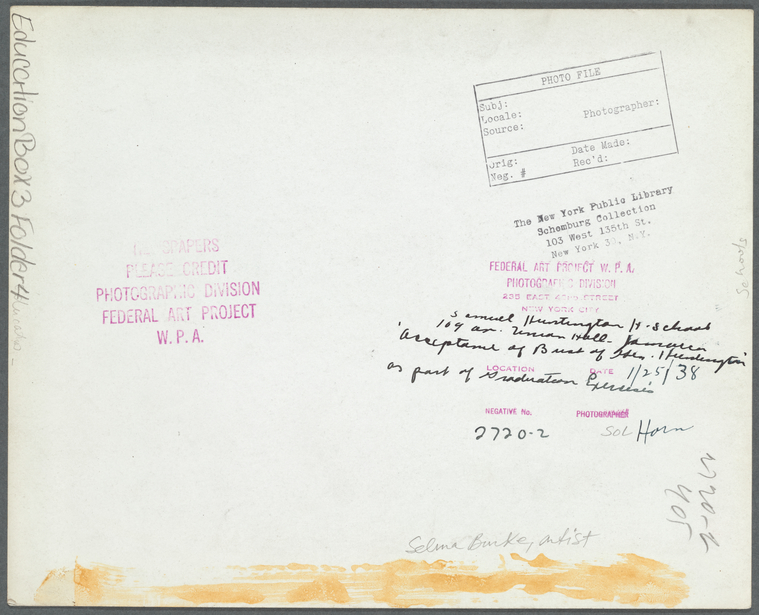 Education Box 3 Folder 4
PHOTO FILE
Subj:
Locale:
Photographer:
Source:
Date Made:
Orig:
Rec'd:
Neg. #
The New York Public Library
Schomburg Collection
103 West 135th St.
New York 30, N.Y.
NEWSPAPERS
PLEASE CREDIT
PHOTOGRAPHIC DIVISION
FEDERAL ART PROJECT
W.P.A.
FEDERAL ART PROJECT W. P. A.
PHOTOGRAPHIC DIVISION
235 EAST 42ND STREET
NEW YORK CITY
Samuel Huntington H. School
109 av. Union Hall - Jamaica
Acceptance of Bust of Huntington
as part of Graduation Exercises
LOCATION
DATE 1/25/38
NEGATIVE No.
PHOTOGRAPHER
2720-2
Sol Horn
Schools
2720-2
405
Selma Burke, artist